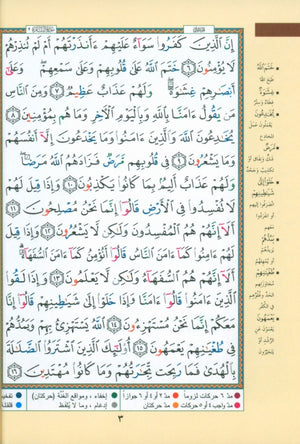 إِنَّ ٱلَّذِينَ كَفَرُوا۟ سَوَآءٌ عَلَيْهِمْ ءَأَنذَرْتَهُمْ أَمْ لَمْ تُنذِرْهُمْ
لَا يُؤْمِنُونَ ٦ خَتَمَ ٱللَّهُ عَلَىٰ قُلُوبِهِمْ وَعَلَىٰ سَمْعِهِمْ ۖ وَعَلَىٰٓ
أَبْصَٰرِهِمْ غِشَٰوَةٌ ۖ وَلَهُمْ عَذَابٌ عَظِيمٌ ٧ وَمِنَ ٱلنَّاسِ
مَن يَقُولُ ءَامَنَّا بِٱللَّهِ وَبِٱلْيَوْمِ ٱلْءَاخِرِ وَمَا هُم بِمُؤْمِنِينَ ٨
يُخَٰدِعُونَ ٱللَّهَ وَٱلَّذِينَ ءَامَنُوا۟ وَمَا يَخْدَعُونَ إِلَّآ أَنفُسَهُمْ
وَمَا يَشْعُرُونَ ٩ فِى قُلُوبِهِم مَّرَضٌ فَزَادَهُمُ ٱللَّهُ مَرَضًا ۖ
وَلَهُمْ عَذَابٌ أَلِيمٌۢ بِمَا كَانُوا۟ يَكْذِبُونَ ١٠ وَإِذَا قِيلَ لَهُمْ
لَا تُفْسِدُوا۟ فِى ٱلْأَرْضِ قَالُوٓا۟ إِنَّمَا نَحْنُ مُصْلِحُونَ ١١
أَلَآ إِنَّهُمْ هُمُ ٱلْمُفْسِدُونَ وَلَٰكِن لَّا يَشْعُرُونَ ١٢ وَإِذَا قِيلَ
لَهُمْ ءَامِنُوا۟ كَمَآ ءَامَنَ ٱلنَّاسُ قَالُوٓا۟ أَنُؤْمِنُ كَمَآ ءَامَنَ ٱلسُّفَهَآءُ ۗ
أَلَآ إِنَّهُمْ هُمُ ٱلسُّفَهَآءُ وَلَٰكِن لَّا يَعْلَمُونَ ١٣ وَإِذَا لَقُوا۟
ٱلَّذِينَ ءَامَنُوا۟ قَالُوٓا۟ ءَامَنَّا وَإِذَا خَلَوْا۟ إِلَىٰ شَيَٰطِينِهِمْ قَالُوٓا۟ إِنَّا
مَعَكُمْ إِنَّمَا نَحْنُ مُسْتَهْزِءُونَ ١٤ ٱللَّهُ يَسْتَهْزِئُ بِهِمْ وَيَمُدُّهُمْ
فِى طُغْيَٰنِهِمْ يَعْمَهُونَ ١٥ أُو۟لَٰٓئِكَ ٱلَّذِينَ ٱشْتَرَوُا۟ ٱلضَّلَٰلَةَ
بِٱلْهُدَىٰ فَمَا رَبِحَت تِّجَٰرَتُهُمْ وَمَا كَانُوا۟ مُهْتَدِينَ ١٦
خَتَمَ اللهُ
طبع الله
غِشَاوَةٌ
غطاء وستر
يُخَادِعُونَ
يعملون عمل
المخادع
مَرَضٌ
شك ونفاق أو
تكذيب وجحد
خَلَوْا إِلَى
شَيَاطِينِهِمْ
انصرفوا إليهم
أو انفردوا
معهم
يَمُدُّهُمْ
يزيدهم أو
يمهلهم
طُغْيَانِهِمْ
مجاوزتهم
الحد وغلوهم
في الكفر
يَعْمَهُونَ
يعمون عن
الرشد أو
يتحيرون
مد ٦ حركات لزوماً مد ٢ أو ٤ أو ٦ جوازاً إخفاء، ومواقع الغنة (حركتان) تفخيم
مد واجب ٤ أو ٥ حركات مد حركتان إدغام، وما لا يلفظ قلقلة
٣